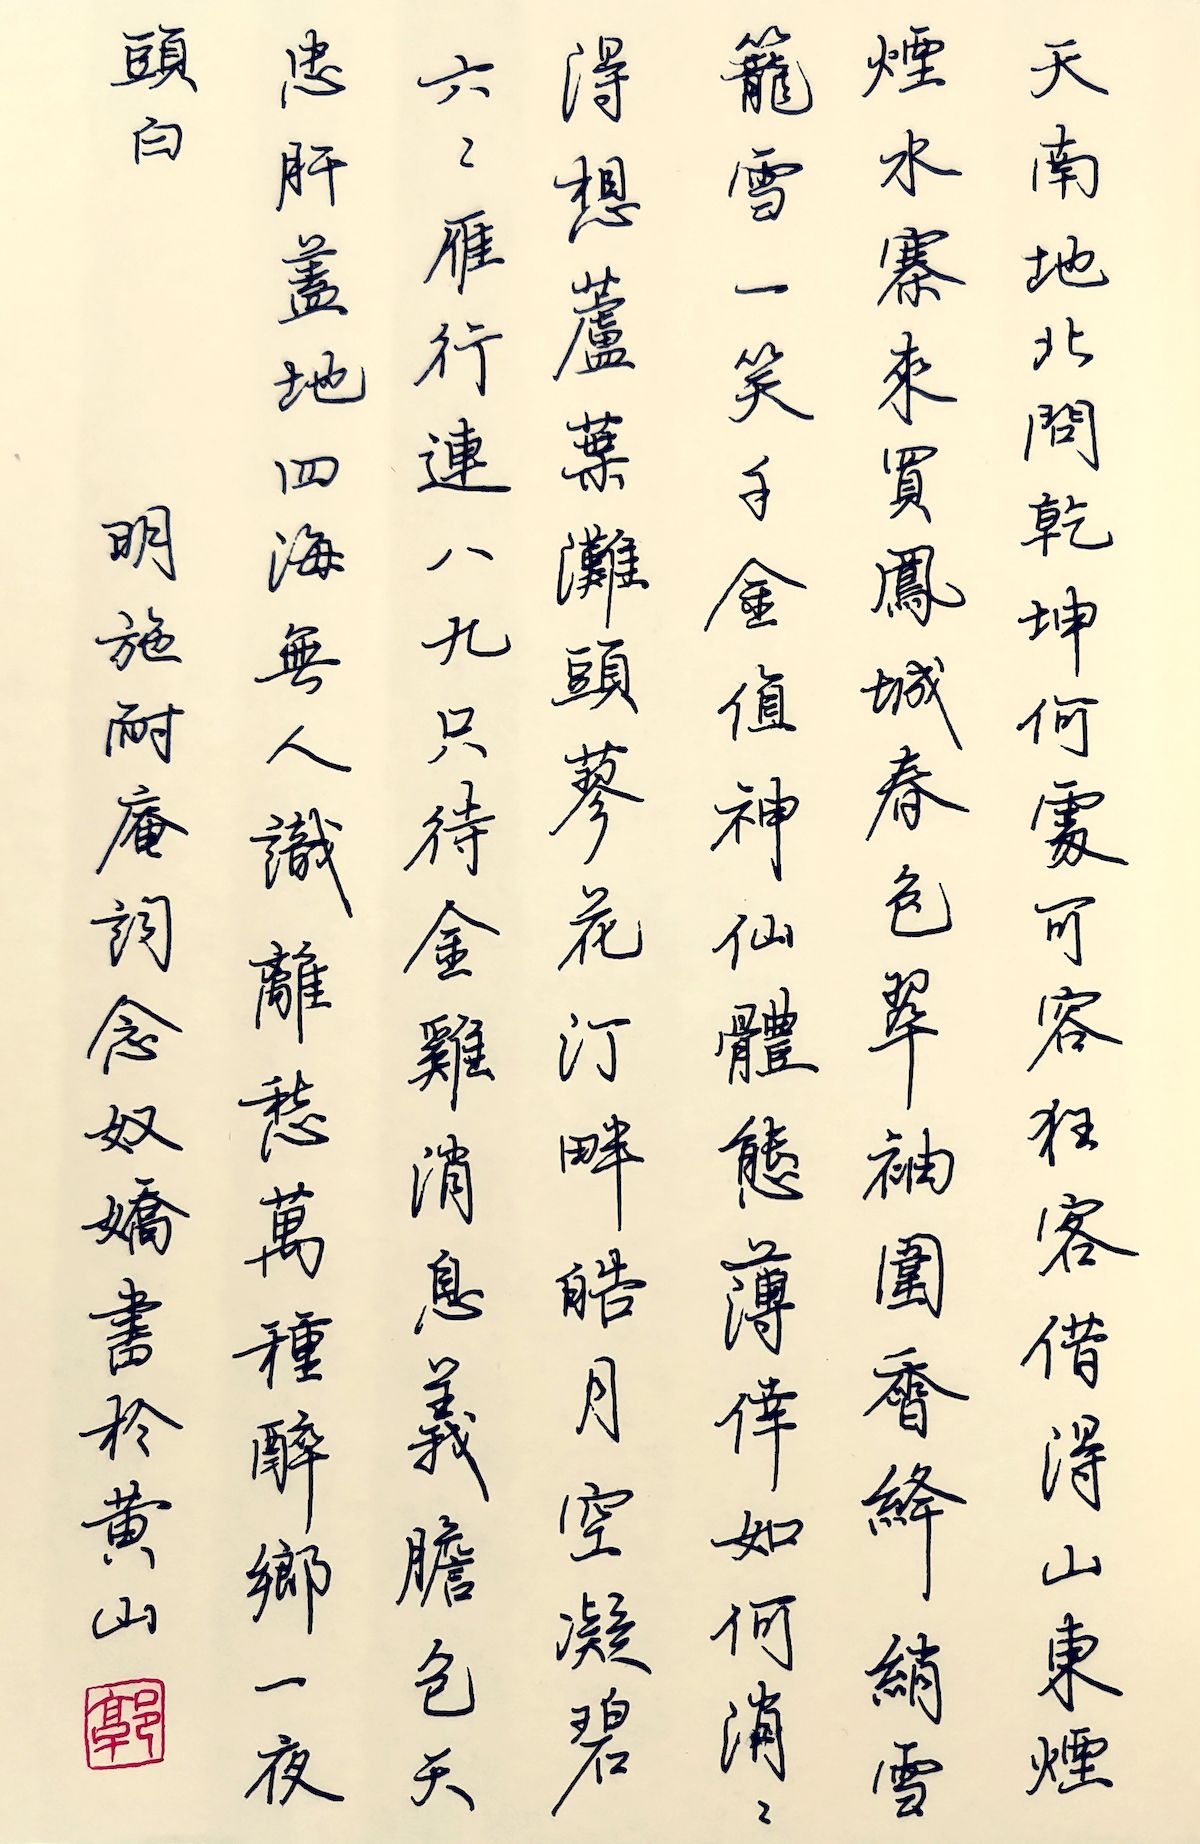 天南地北問乾坤何處可容狂客借得山東煙
煙水寨來買鳳城春色翠袖圍香絳綃雪
籠雪一笑千金值神仙體態薄倖如何消〻
得想蘆葉灘頭蓼花汀畔皓月空凝碧
六〻雁行連八九只待金雞消息義膽包天
忠肝蓋地四海無人識離愁萬種醉鄉一夜
頭白
明施耐庵詞念奴嬌書於黃山
郭